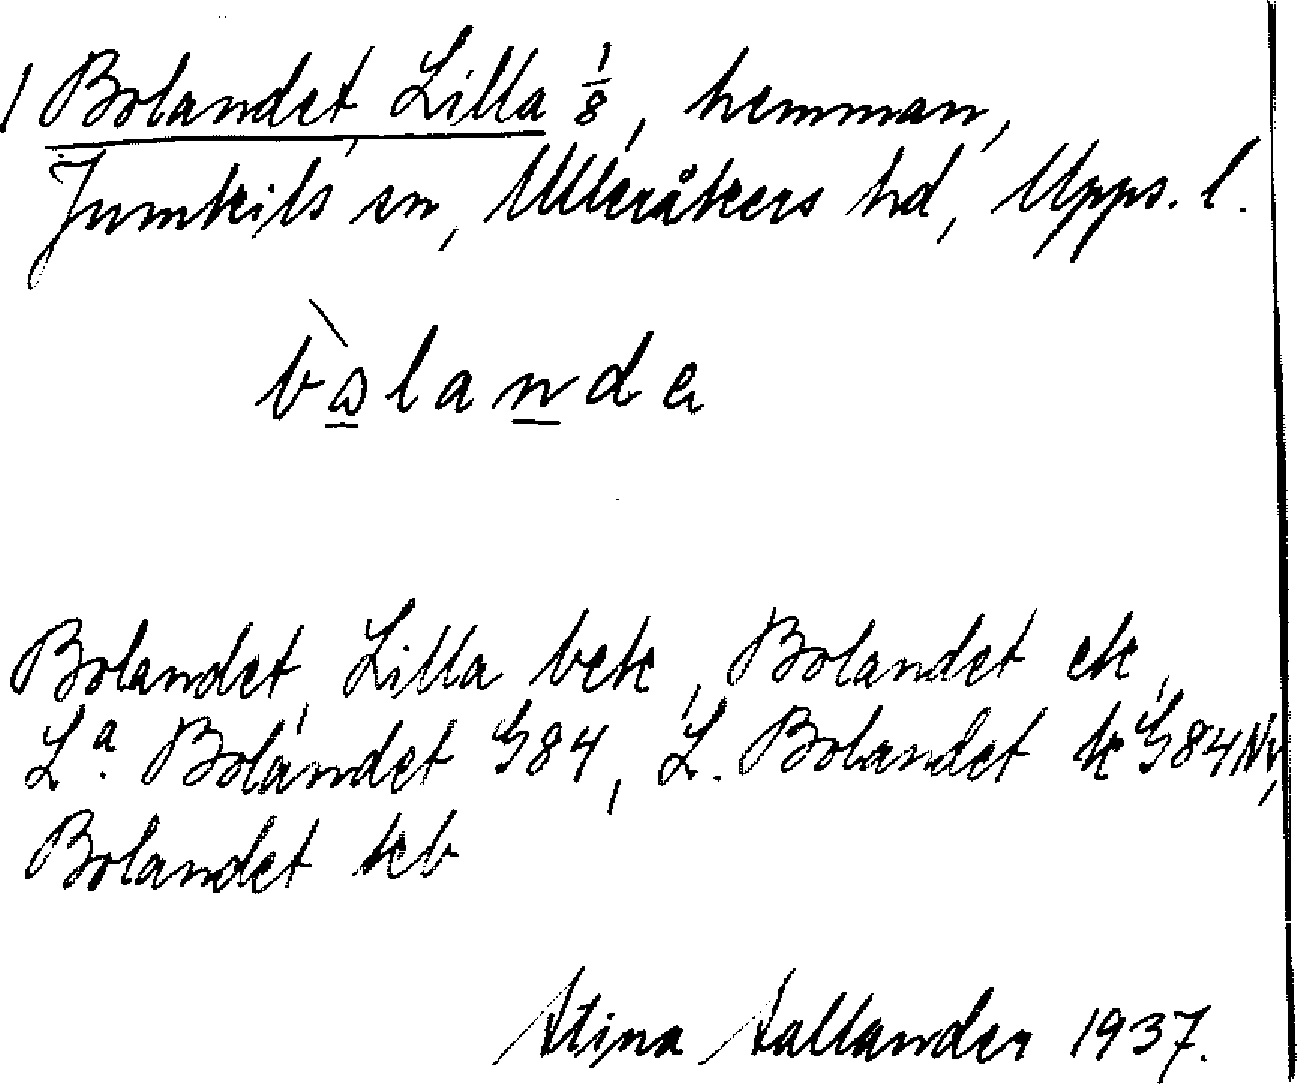 1 Bolandet, Lilla 1/8, hemman,
Jumkils sn, Ulleråkers hd, Upps. l.
Bolandet, Lilla bek, Bolandet ek,
L:a Bolandet G84, L. Bolandet k G84Nv,
Bolandet kb
Stina Sallander 1937.